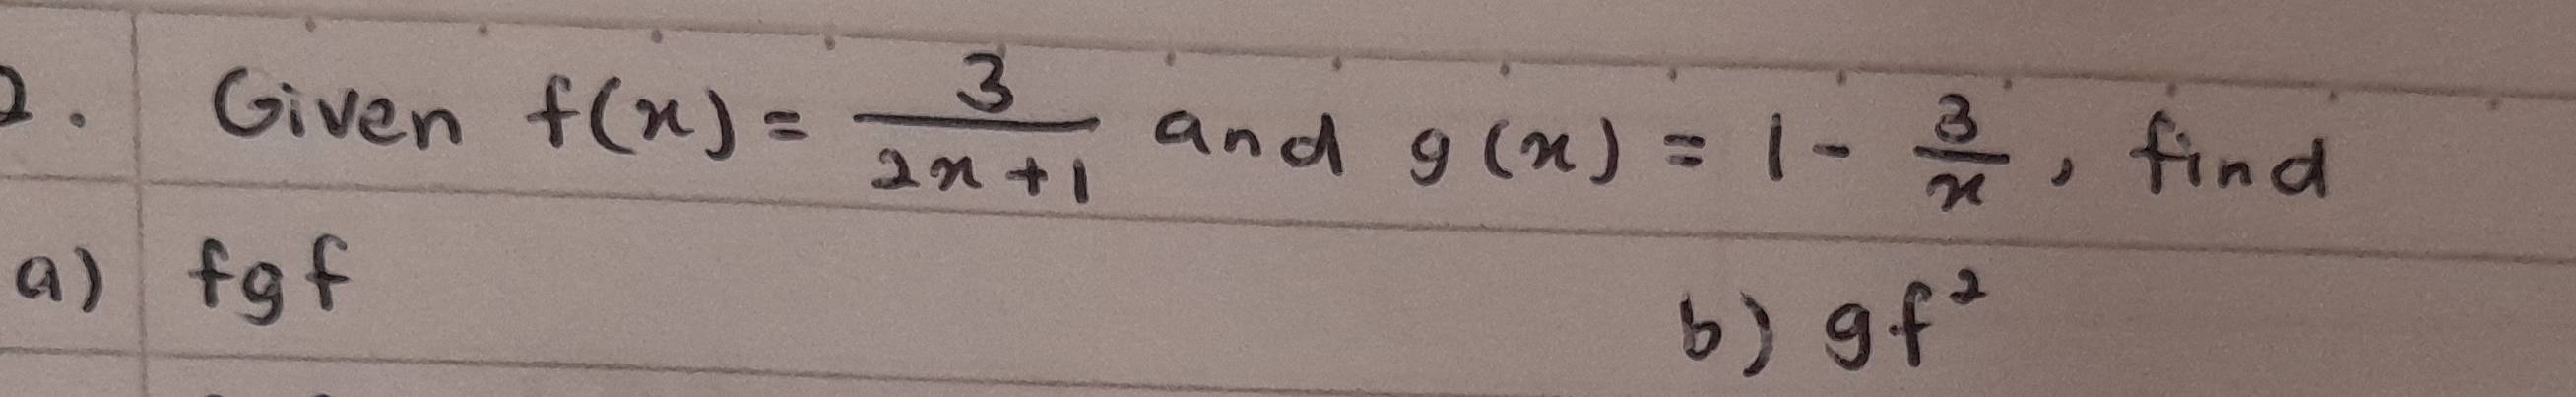 2. Given f(x) = 3/(2x+1) and g(x) = 1 - 3/x, find
a) fgf b) gf²